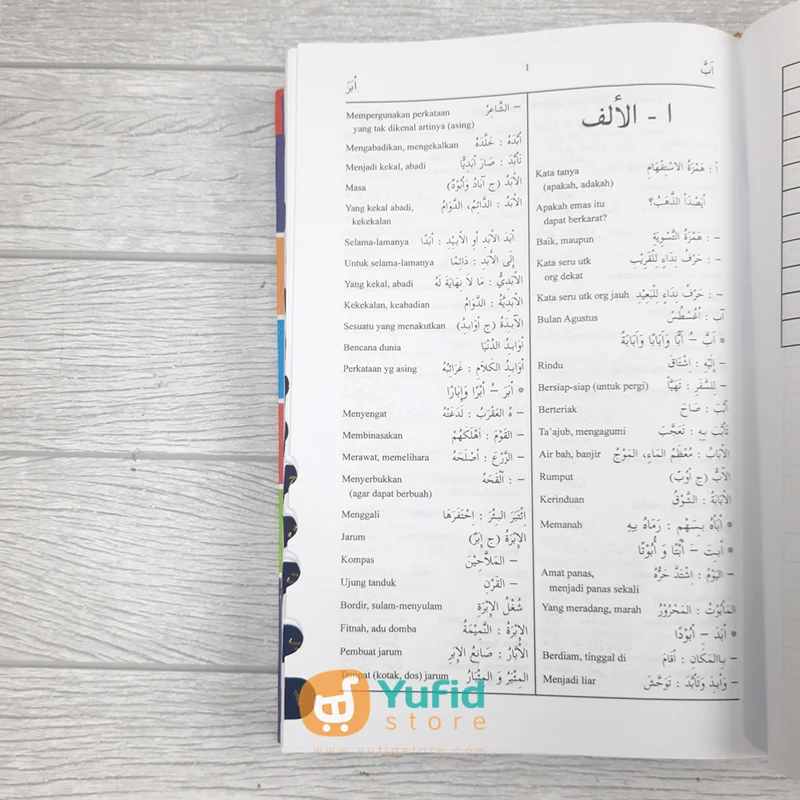 أَبَّ
1
أَبَرَ
ا - الألف
أ : هَمْزَةُ الاسْتِفْهَامِ Kata tanya
(apakah, adakah)
أَيَصْدَأُ الذَّهَبُ؟ Apakah emas itu
dapat berkarat?
– : هَمْزَةُ التَّسْوِيَةِ Baik, maupun
– : حَرْفُ نِدَاءٍ لِلْقَرِيْبِ Kata seru utk
org dekat
– : حَرْفُ نِدَاءٍ لِلْبَعِيْدِ Kata seru utk org jauh
آب : أُغُسْطُسْ Bulan Agustus
* أَبَّ – أَبًّا وَأَبَابًا وَأَبَابَةً
– إِلَيْهِ : اشْتَاقَ Rindu
– لِلسَّفَرِ : تَهَيَّأَ Bersiap-siap (untuk pergi)
أَبَّبَ : صَاحَ Berteriak
تَأَبَّبَ بِهِ : تَعَجَّبَ Ta'ajub, mengagumi
الأَبَابُ : مُعْظَمُ المَاءِ، المَوْجُ Air bah, banjir
الأَبُّ (ج أَوُبّ) Rumput
الأَبَابَةُ : الشَّوْقُ Kerinduan
* أَبَأَهُ بِسَهْمٍ : رَمَاهُ بِهِ Memanah
* أَبِتَ – أَبْتًا وَ أُبُوْتًا
– اليَوْمُ : اشْتَدَّ حَرُّهُ Amat panas,
menjadi panas sekali
المَأْبُوْتُ : المَحْرُوْرُ Yang meradang, marah
* أَبَدَ – أُبُوْدًا
– بِالمَكَانِ : أَقَامَ Berdiam, tinggal di
– وَأَبِدَ وَتَأَبَّدَ : تَوَحَّشَ Menjadi liar
– الشَّاعِرُ Mempergunakan perkataan
yang tak dikenal artinya (asing)
أَبَّدَهُ : خَلَّدَهُ Mengabadikan, mengekalkan
تَأَبَّدَ : صَارَ أَبَدِيًّا Menjadi kekal, abadi
الأَبَدُ (ج آبَادٌ وَأُبُوْدٌ) Masa
الأَبَدُ : الدَّائِمُ، الدَّوَامُ Yang kekal abadi,
kekekalan
أَبَدَ الأَبَدِ أَوِ الأَبِيْدِ : أَبَدًا Selama-lamanya
إِلَى الأَبَدِ : دَائِمًا Untuk selama-lamanya
الأَبَدِيُّ : مَا لاَ نِهَايَةَ لَهُ Yang kekal, abadi
الأَبَدِيَّةُ : الدَّوَامُ Kekekalan, keabadian
الآبِدَةُ (ج أَوَابِدُ) Sesuatu yang menakutkan
أَوَابِدُ الدُّنْيَا Bencana dunia
أَوَابِدُ الكَلاَمِ : غَرَائِبُهُ Perkataan yg asing
* أَبَرَ – أَبْرًا وَإِبَارًا
– هُ العَقْرَبُ : لَدَغَتْهُ Menyengat
– القَوْمَ : أَهْلَكَهُمْ Membinasakan
– الزَّرْعَ : أَصْلَحَهُ Merawat, memelihara
– : أَلْقَحَهُ Menyerbukkan
(agar dapat berbuah)
اِئْتَبَرَ البِئْرَ : اِحْتَفَرَهَا Menggali
الإِبْرَةُ (ج إِبَرٌ) Jarum
– المَلاَّحِيْنَ Kompas
– القَرْنِ Ujung tanduk
شُغْلُ الإِبْرَةِ Bordir, sulam-menyulam
الإِبْرَةُ : النَّمِيْمَةُ Fitnah, adu domba
الأَبَّارُ : صَانِعُ الإِبَرِ Pembuat jarum
المِئْبَرُ وَ المِئْبَارُ (kotak, dos) jarum
Yufid
store
www.yufidstore.com